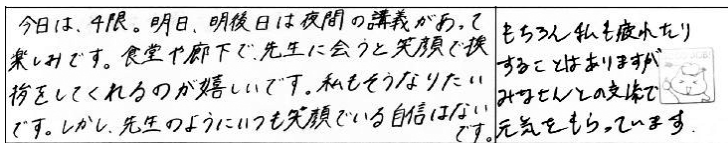 今日は、4限。明日、明後日は夜間の講義があって
楽しみです。食堂や廊下で、先生に会うと笑顔で挨
拶をしてくれるのが嬉しいです。私もそうなりたい
です。しかし、先生のようにいつも笑顔でいる自信はない
です。
もちろん私も疲れたり
することはありますが
みなさんとの交流で
元気をもらっています.